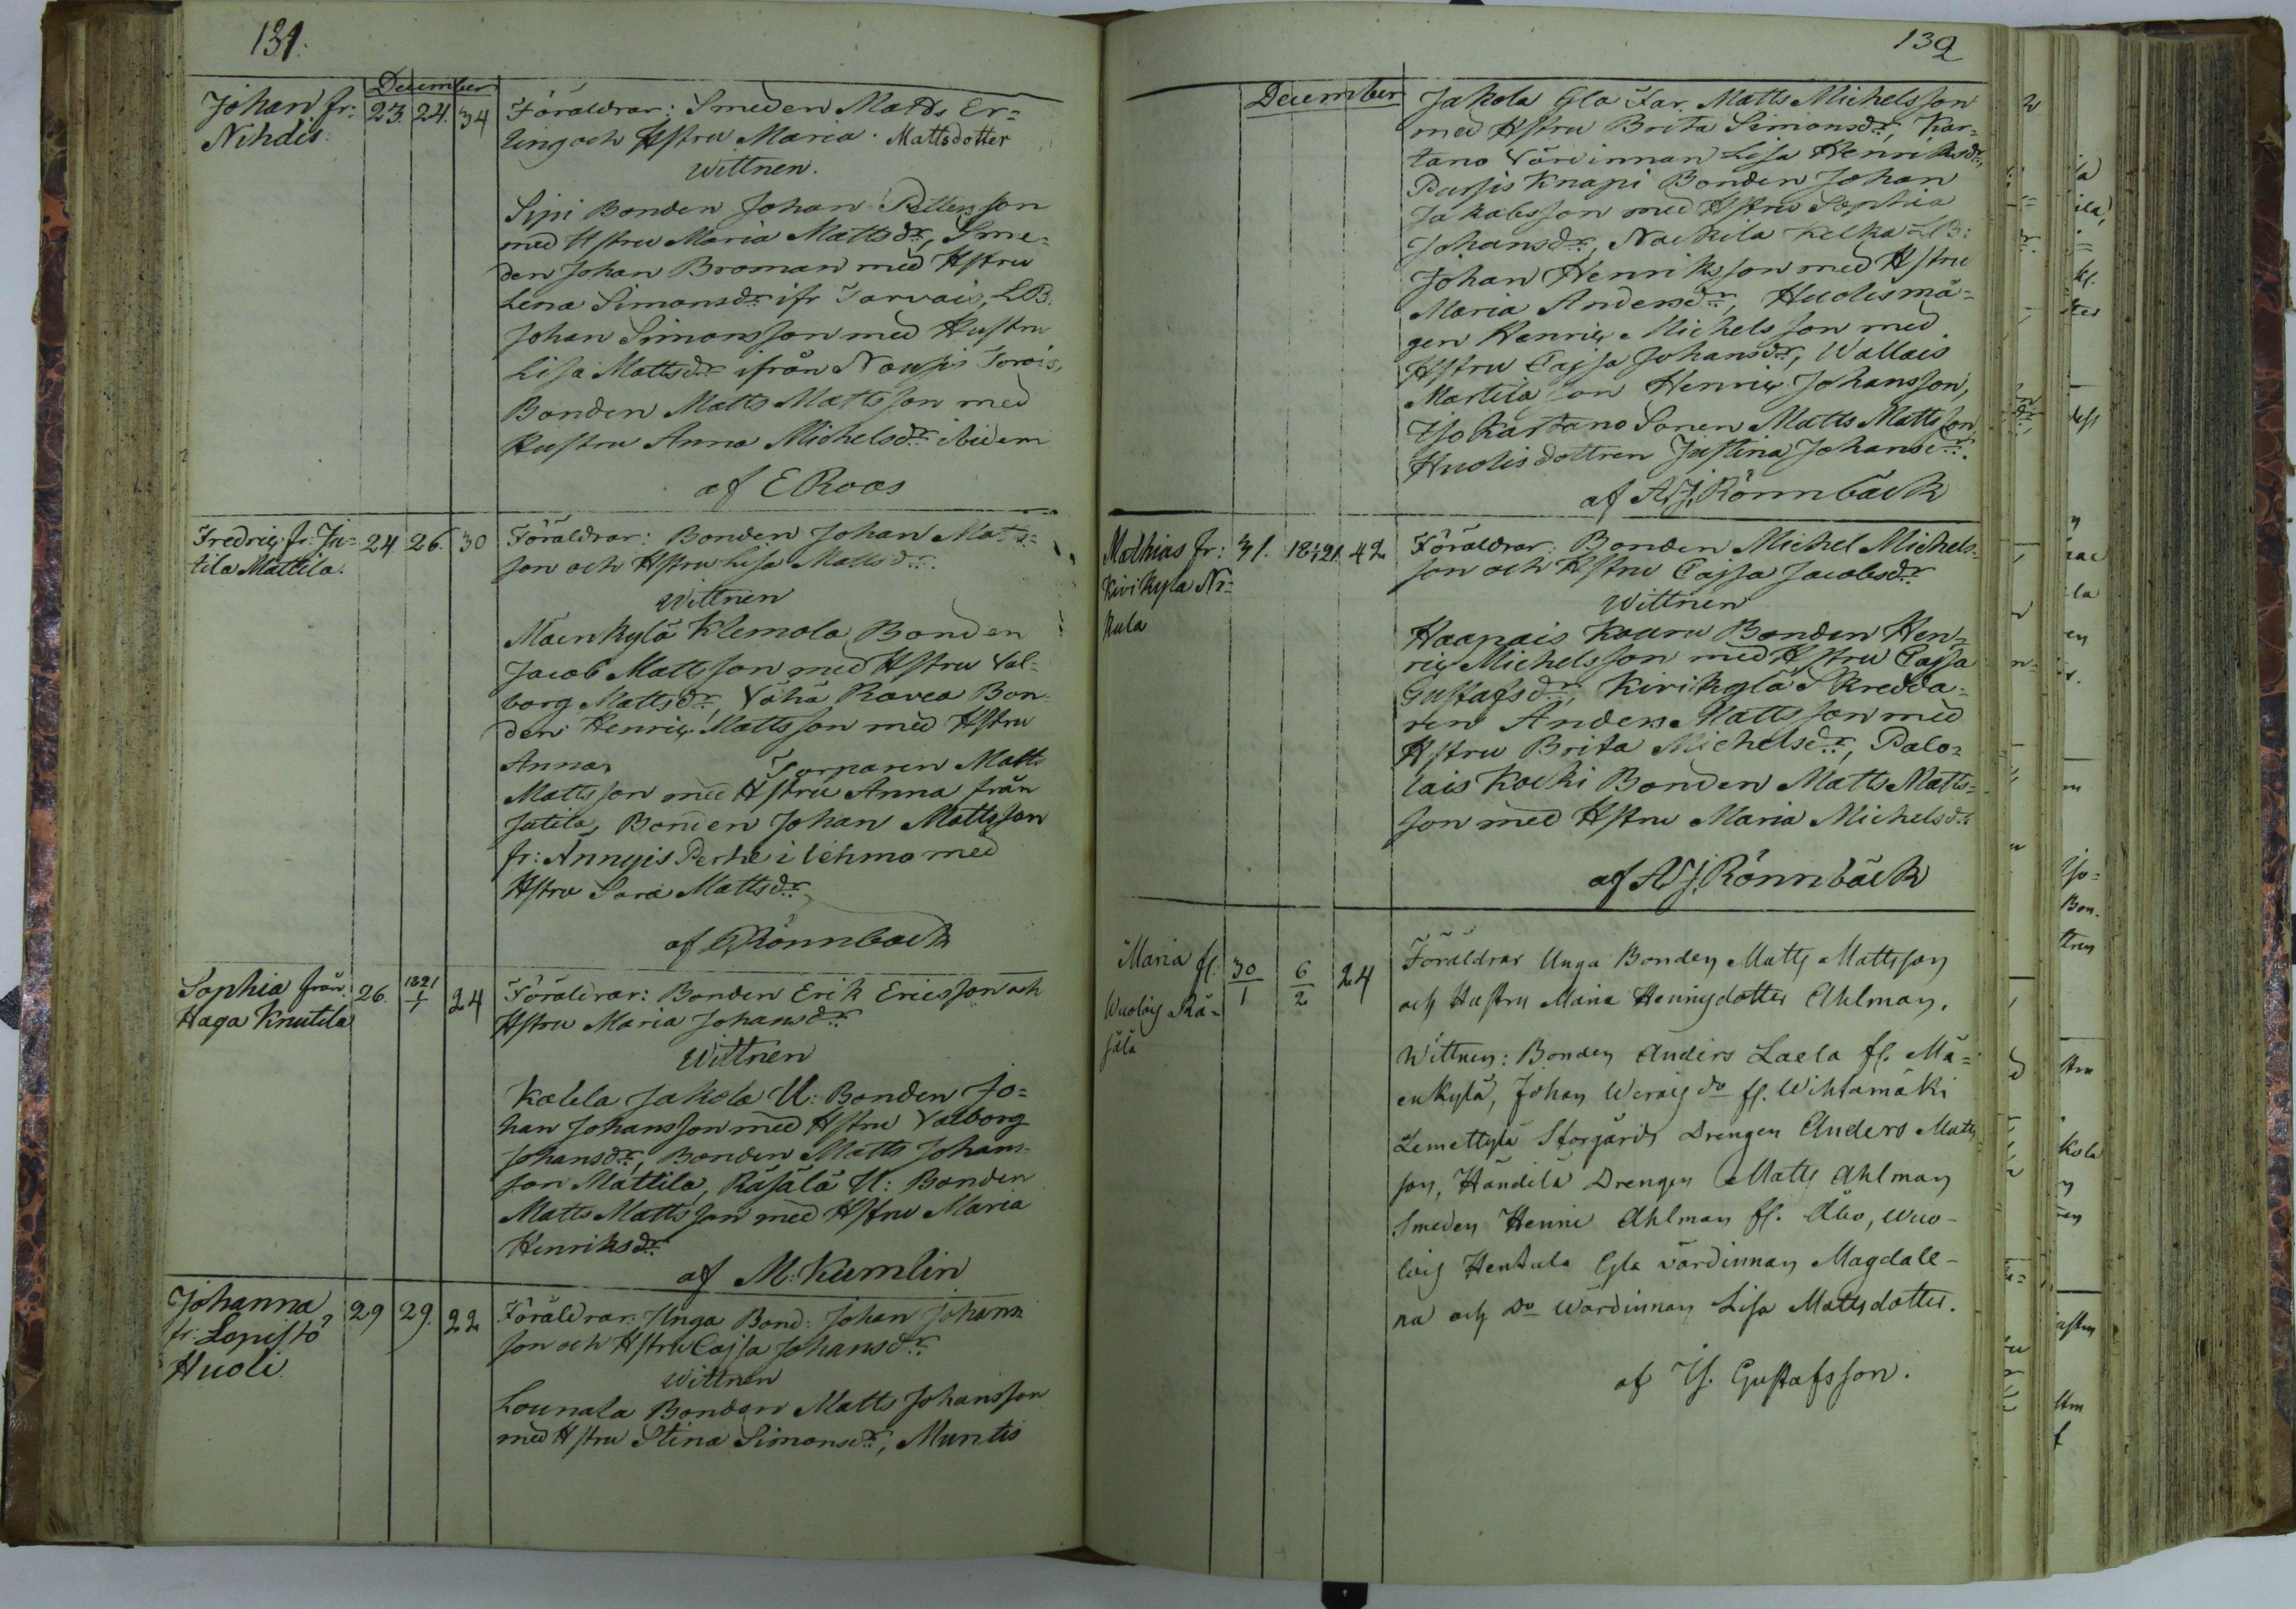 131.
December
Johan fr:
Nihdis.
23. 24. 34
Föräldrar: Smeden Matts Er=
ling och Hstru Maria Mattsdotter
Wittnen.
Sipi Bonden Johan Pettersson
med Hstru Maria Mattsdr, Sme=
den Johan Broman med Hstru
Lena Simonsdr ifr Torvais, LB.
Johan Simonsson med Hustru
Lisa Mattsdr ifrån Nousis Torois,
Bonden Matts Mattsson med
Hustru Anna Michelsdr ibidem
af E Roos
Fredric fr. Ju=
tila Mattila.
24. 26. 30
Föräldrar: Bonden Johan Mats=
son och Hstru Lisa Mattsdr.
Wittnen
Mäenkylä Klemola Bonden
Jacob Mattsson med Hstru Val=
borg Mattsdr, Vähä Ravea Bon
den Henric Mattsson med Hstru
Anna, Torparen Matts
Mattsson med Hstru Anna från
Jutila, Bonden Johan Mattsson
fr: Annyis Perhe i Vehmo med
Hstru Sara Mattsdr
af Rönnback
Sophia från
Haga Knutila
26. 1821 1/1 24
Föräldrar: Bonden Erik Ericsson och
Hstru Maria Johansdr
Wittnen
Kalela Jakola U: Bonden Jo=
han Johansson med Hstru Valborg
Johansdr, Bonden Matts Johans
son Mattila, Räsälä U: Bonden
Matts Mattsson med Hstru Maria
Henriksdr
af M. Kumlin
Johanna
fr: Lepistö
Huoli.
29 29. 22
Föräldrar: Unga Bond: Johan Johans
son och Hstru Cajsa Johansdr
Wittnen
Lounala Bonden Matts Johansson
med Hstru Stina Simonsdr, Muntis
132
December
Jakola Gla Far. Matts Michelsson
med Hstru Brita Simonsdr, Kar=
tano Värdinnan Lisa Henriksdr,
Pursis Knapi Bonden Johan
Jakobsson med Hstru Sophia
Johansdr, Nackila Kelka LB:
Johan Henriksson med Hstru
Maria Andersdr, Huolismå=
gen Henric Michelsson med
Hstru Cajsa Johansdr, Wallais
Martila son Henric Johansson,
Iso Kartano Sonen Matts Mattsson
Huolis dottren Justina Johansdr.
af A. J. Rönnbäck
Mathias fr:
Kivikyla Ni=
kula
31. 18 1/1 21. 42
Föräldrar: Bonden Michel Michels=
son och Hstru Cajsa Jacobsdr
Wittnen
Haapais Kouru Bonden Hen=
ric Michelsson med Hstru Cajsa
Gustafsdr, Kivikylä Skredda=
ren Anders Mattsson med
Hstru Brita Michelsdr, Palo=
lais Kocki Bonden Matts Matts=
son med Hstru Maria Michelsdr
af A. J. Rönnbäck
Maria fr.
Wuolis Rä=
sälä
30/1 6/2 24
Föräldrar Unga Bonden Matts Mattsson
och Hustru Maria Henricsdotter Ahlman.
Wittnen: Bonden Anders Laela fr. Mä=
enkylä, Johan Werais do fr. Wihtamäki
Lemettylä Storgårds Drengen Anders Matts
son, Händilä Drengen Matts Ahlman
Smeden Henric Ahlman fr. Åbo, Wuo-
lois Hentula Gla värdinnan Magdale-
na och do wärdinnan Lisa Mattsdotter.
af Is. Gustafsson.